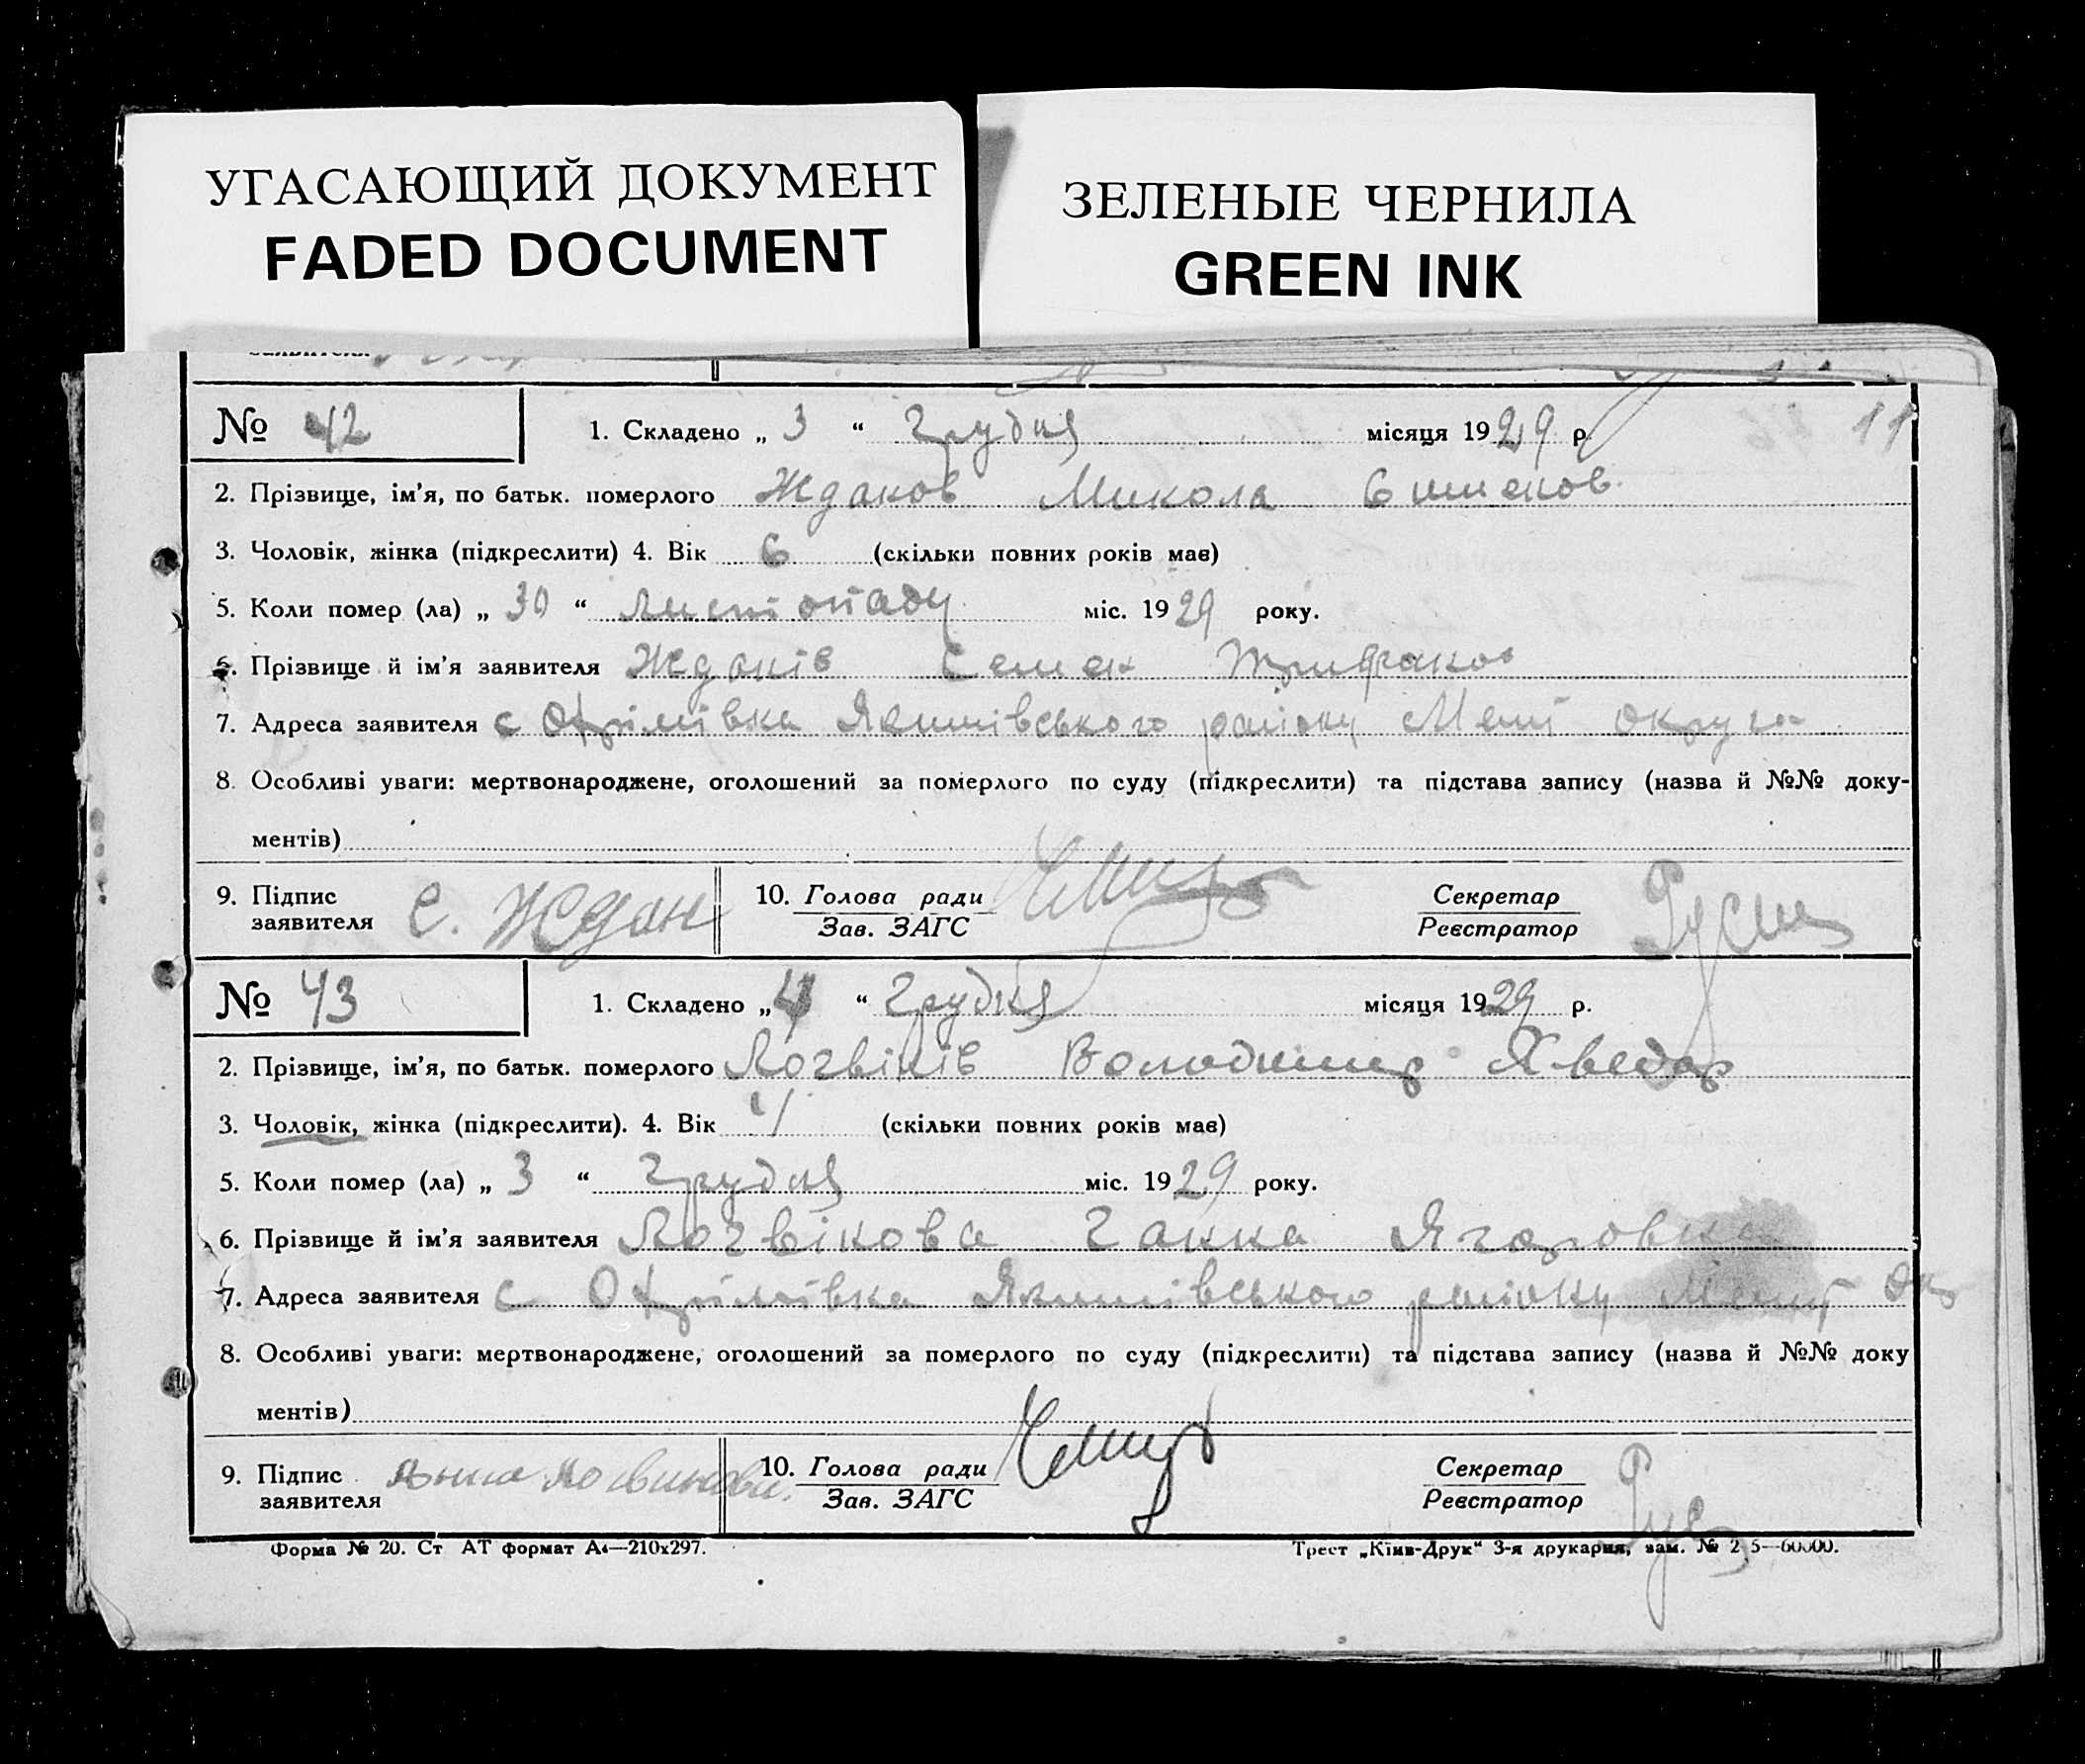 УГАСАЮЩИЙ ДОКУМЕНТ
FADED DOCUMENT
ЗЕЛЕНЫЕ ЧЕРНИЛА
GREEN INK
№ 42 1. Складено „ 3 “ Грудня місяця 1929 р. 11
2. Прізвище, ім’я, по батьк. померлого Жданов Микола Сименов.
3. Чоловік, жінка (підкреслити) 4. Вік 6 (скільки повних років має)
5. Коли помер (ла) „ 30 “ листопаду міс. 1929 року.
6. Прізвище й ім’я заявителя Жданів Семен
7. Адреса заявителя с Охрімівка Якимівського району Меліт округи
8. Особливі уваги: мертвонароджене, оголошений за померлого по суду (підкреслити) та підстава запису (назва й №№ доку-
ментів)
9. Підпис заявителя С. Ждан 10. Голова ради Зав. ЗАГС Секретар Реєстратор
№ 43 1. Складено „ 4 “ Грудня місяця 1929 р.
2. Прізвище, ім’я, по батьк. померлого Логвінів Володимир Хведор
3. Чоловік, жінка (підкреслити). 4. Вік 4 (скільки повних років має)
5. Коли помер (ла) „ 3 “ Грудня міс. 1929 року.
6. Прізвище й ім’я заявителя Логвінова Ганна Ягоровна
7. Адреса заявителя с Охрімівка Якимівського району Меліт Окр
8. Особливі уваги: мертвонароджене, оголошений за померлого по суду (підкреслити) та підстава запису (назва й №№ доку
ментів)
9. Підпис заявителя Анна Логвинова. 10. Голова ради Зав. ЗАГС Секретар Реєстратор
Форма № 20. Ст АТ формат А4—210х297. Трест „Київ-Друк“ 3-я друкарня, зам. №